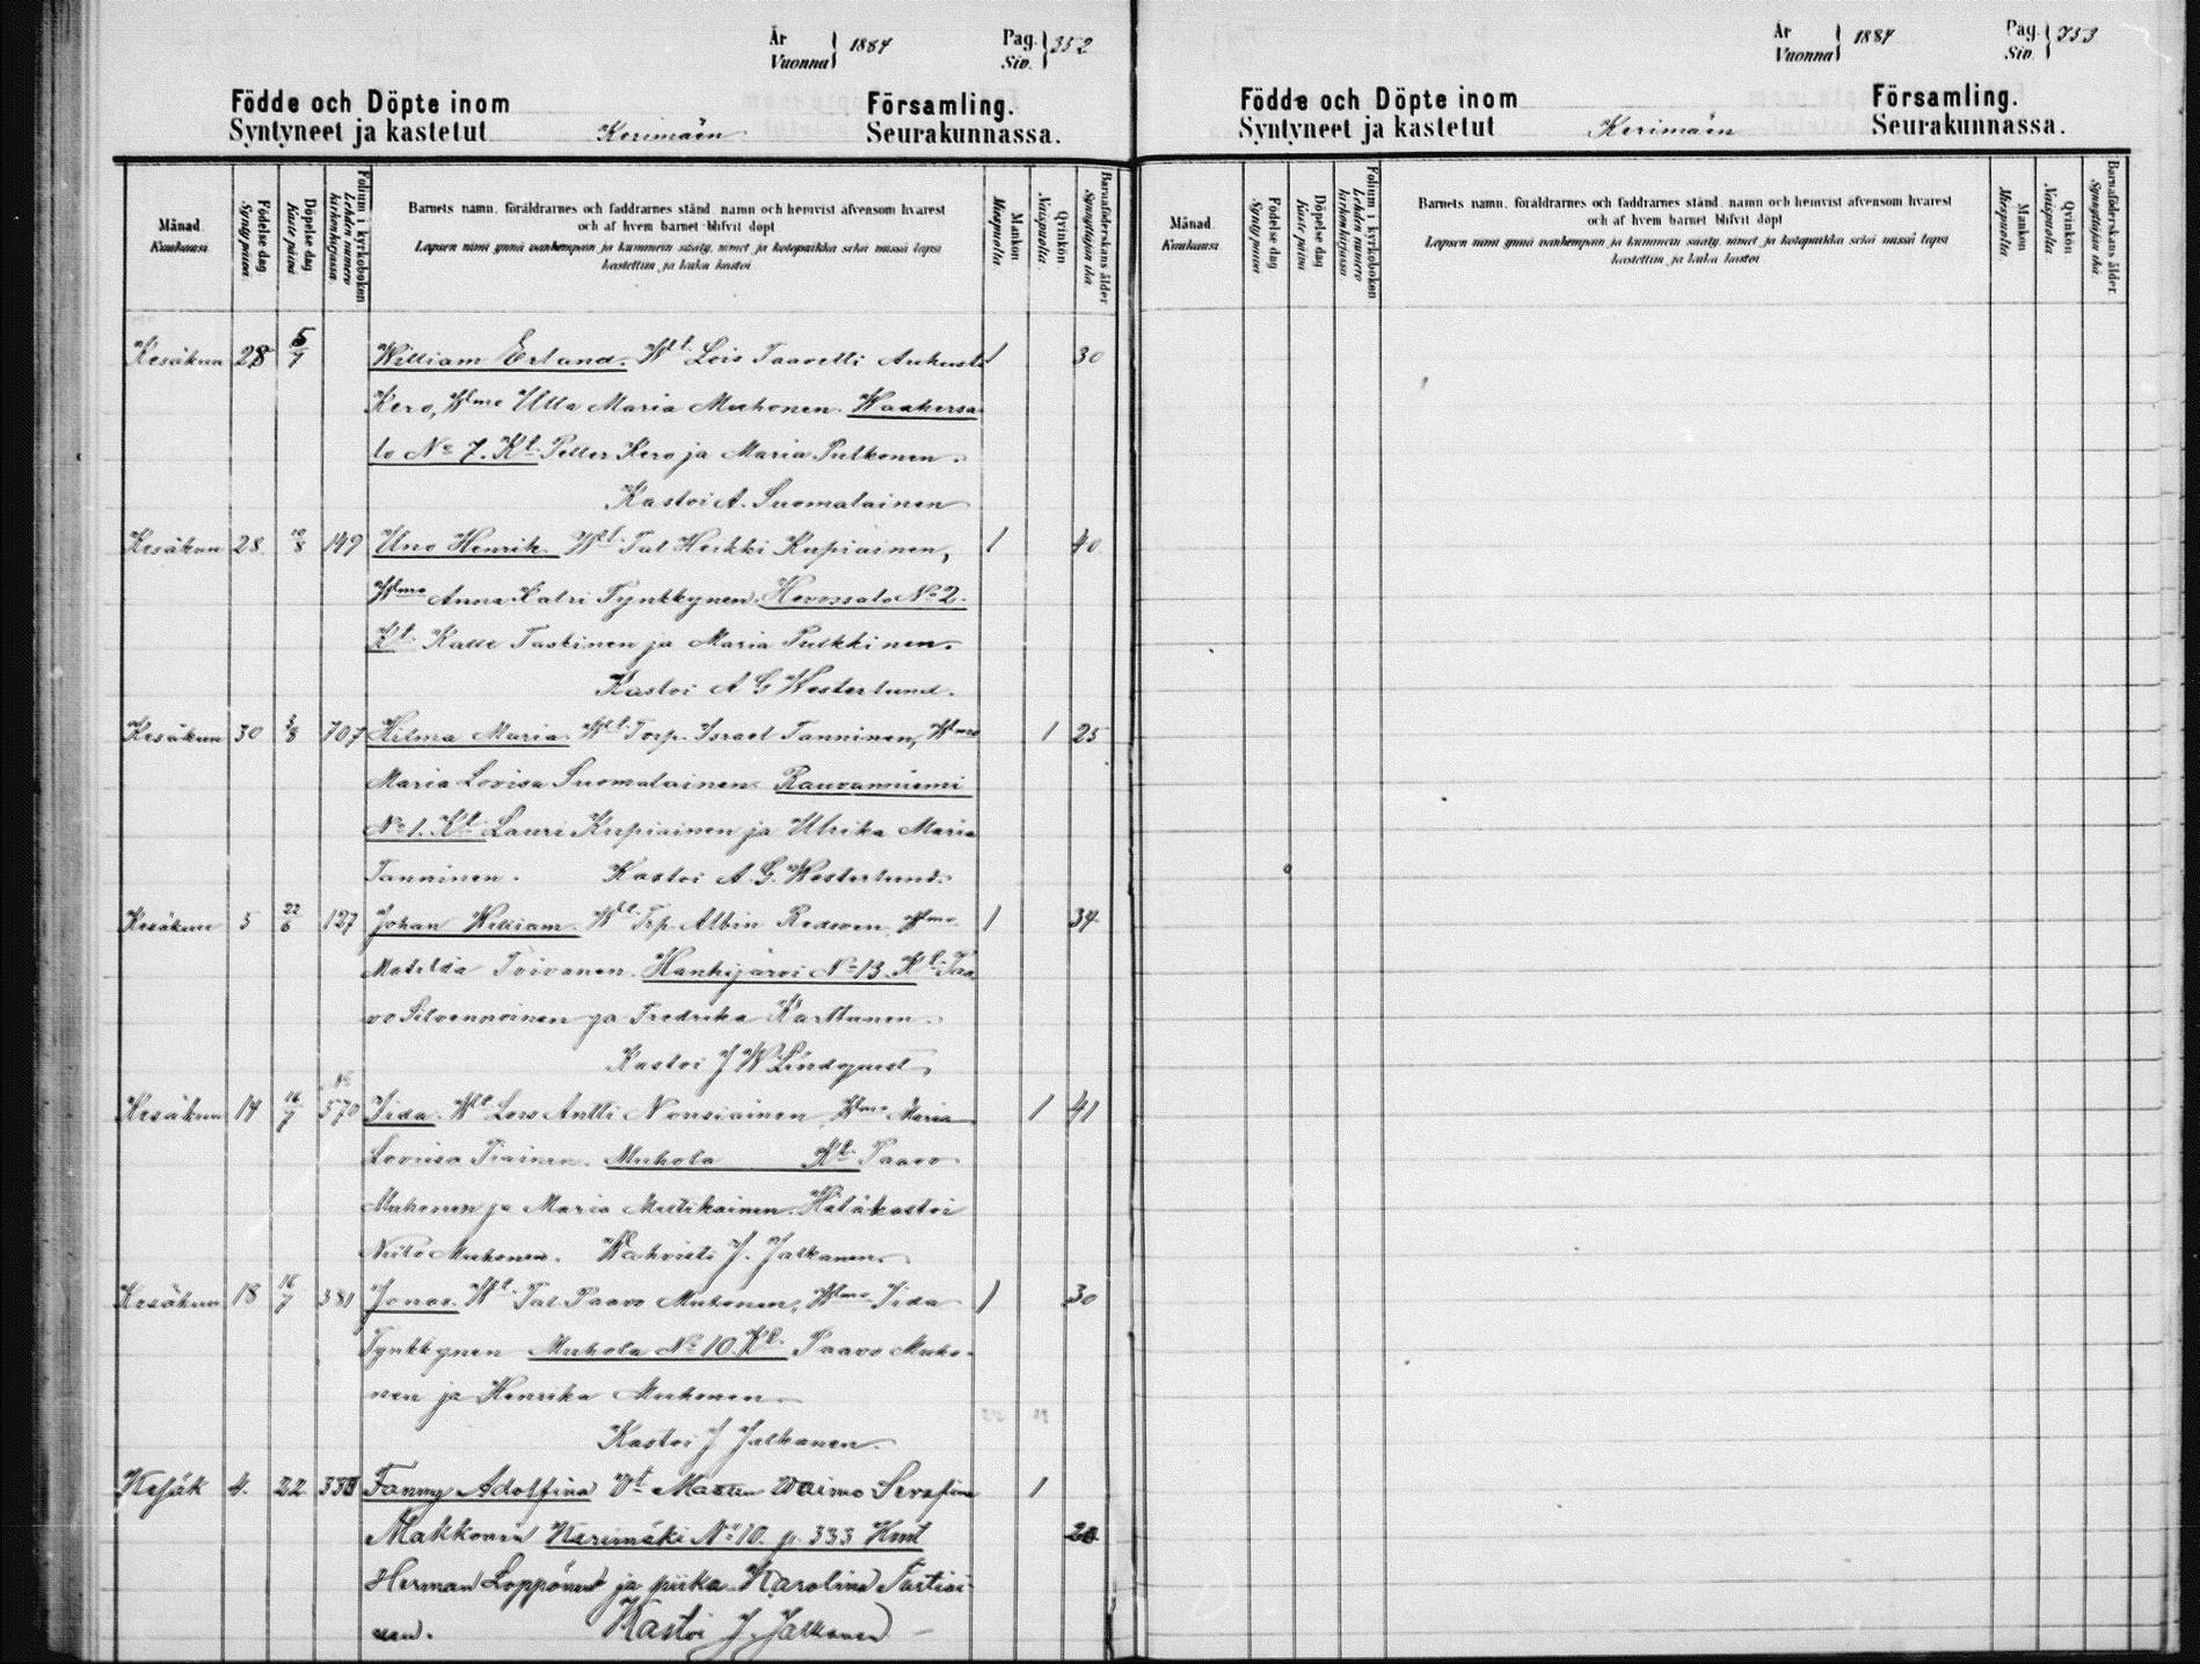 År
Vuonna } 1884
Pag.
Siv. } 352
Födde och Döpte inom Församling.
Syntyneet ja kastetut Kerimäen Seurakunnassa.
Månad. Kuukausi.
Födelse dag Synty päivä.
Döpelse dag Kaste päivä
Folium i kyrkoboken Lehden numero kirkonkirjassa.
Barnets namn, föräldrarnes och faddrarnes stånd, namn och hemvist äfvensom hvarest
och af hvem barnet blifvit döpt
Lapsen nimi ynnä vanhempain ja kummein sääty, nimet ja kotopaikka sekä missä lapsi
kastettiin ja kuka kastoi
Mankön Miespuolia.
Qvinkön Naispuolia.
Barnaföderskans ålder Synnyttäjän ikä
Kesäkuu 28 5/7 William Erland. Wt. Lois Taavetti Aukusti 1 30
Kero, Wmo Ulla Maria Muhonen. Waahersa-
lo No 7. Kt. Petter Kero ja Maria Pulkonen.
Kastoi A. Suomalainen
Kesäkuu 28 10/8 149 Uno Henrik. Wt. Tal Heikki Kupiainen, 1 40
Wmo Anna Katri Tynkkynen. Hevossalo No 2.
Kt. Kalle Taskinen ja Maria Pulkkinen.
Kastoi A G Westerlund.
Kesäkuu 30 3/8 707 Hilma Maria Wt. Torp. Israel Tanninen, Wmo 1 25
Maria Lovisa Suomalainen. Rauvanniemi
No 1. Kt. Lauri Kupiainen ja Ulrika Maria
Tanninen. Kastoi A. G. Westerlund.
Kesäkuu 5 22/6 127 Johan William. Wt. Trp. Albin Redsven, Wmo 1 34
Matilda Toivanen. Hanhijärvi No 13. Kt. Paa
vo Silvennoinen ja Fredrika Karttunen.
Kastoi J W Lindqvist,
Kesäkuu 14 16/7 570 Iida. Wt. Lois Antti Nousiainen, Wmo Maria 1 41
Loviisa Tiainen. Muhola Kt. Paavo
Muhonen ja Maria Mustikainen. Hätäkastoi
Niilo Muhonen. Wahvisti J. Jalkanen.
Kesäkuu 18 16/7 381 Jonas. Wt. Tal. Paavo Muhonen, Wmo Iida 1 30
Tynkkynen Muhola No 10. Kt. Paavo Muho-
nen ja Henrika Muhonen.
Kastoi J Jalkanen.
Kesäk 4. 22. Fanny Adolfina Vt Matti vaimo Serafina 1
Makkonen Kerimäki No 10. p. 333 Kmt
Herman Loppönen ja piika Karolina Turtiai-
nen. Kastoi J. Jalkanen
År
Vuonna } 1884
Pag.
Siv. } 353
Födde och Döpte inom Församling.
Syntyneet ja kastetut Kerimäen Seurakunnassa.
Månad. Kuukausi.
Födelse dag Synty päivä
Döpelse dag Kaste päivä
Folium i kyrkoboken Lehden numero kirkonkirjassa
Barnets namn, föräldrarnes och faddrarnes stånd, namn och hemvist äfvensom hvarest
och af hvem barnet blifvit döpt
Lapsen nimi ynnä vanhempain ja kummein sääty, nimet ja kotopaikka sekä missä lapsi
kastettiin ja kuka kastoi
Mankön Miespuolia
Qvinkön Naispuolia
Barnaföderskans ålder Synnyttäjän ikä